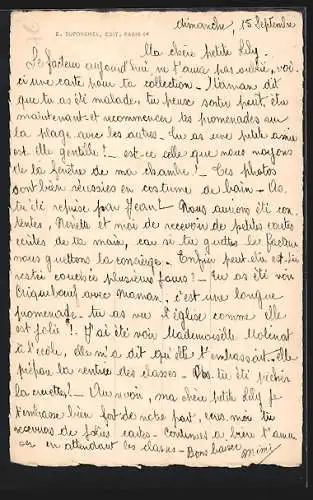 E. DUPONCHEL, EDIT. PARIS 6e
dimanche, 15 Septembre
Ma chère petite Lily.
Le facteur aujourd'hui, ne t'aura pas oubliée, voi-
ci une carte pour ta collection. Maman dit
que tu as été malade, tu peux sortir peut être
maintenant et recommencer tes promenades sur
la plage avec les autres. Tu as une petite amie
est elle gentille? — est-ce celle que nous voyons
de la fenêtre de ma chambre? — Tes photos
sont bien réussies en costume de bain — As.
tu été reprise par Jean? — Nous aurions été con-
tentes, et moi de recevoir de petites cartes
écrites de ta main, car si tu guettes le facteur
nous guettons la concierge. Enfin peut être es tu
restée couchée plusieurs jours? — Tu as été voir
Criquebœuf avec Maman, c'est une longue
promenade. tu as vu l'église comme elle
est jolie!! J'ai été voir Mademoiselle Molinat
à l'école, elle m'a dit qu'elle t'embrassait. Elle
prépare la rentrée des classes. — As. tu été pêcher
la crevette? — Au revoir, ma chère petite Lily je
t'embrasse bien fort de notre part, tu
recevras de jolies cartes. Continues à bien t'amu-
ser en attendant les classes — Bons baisers
Mimi